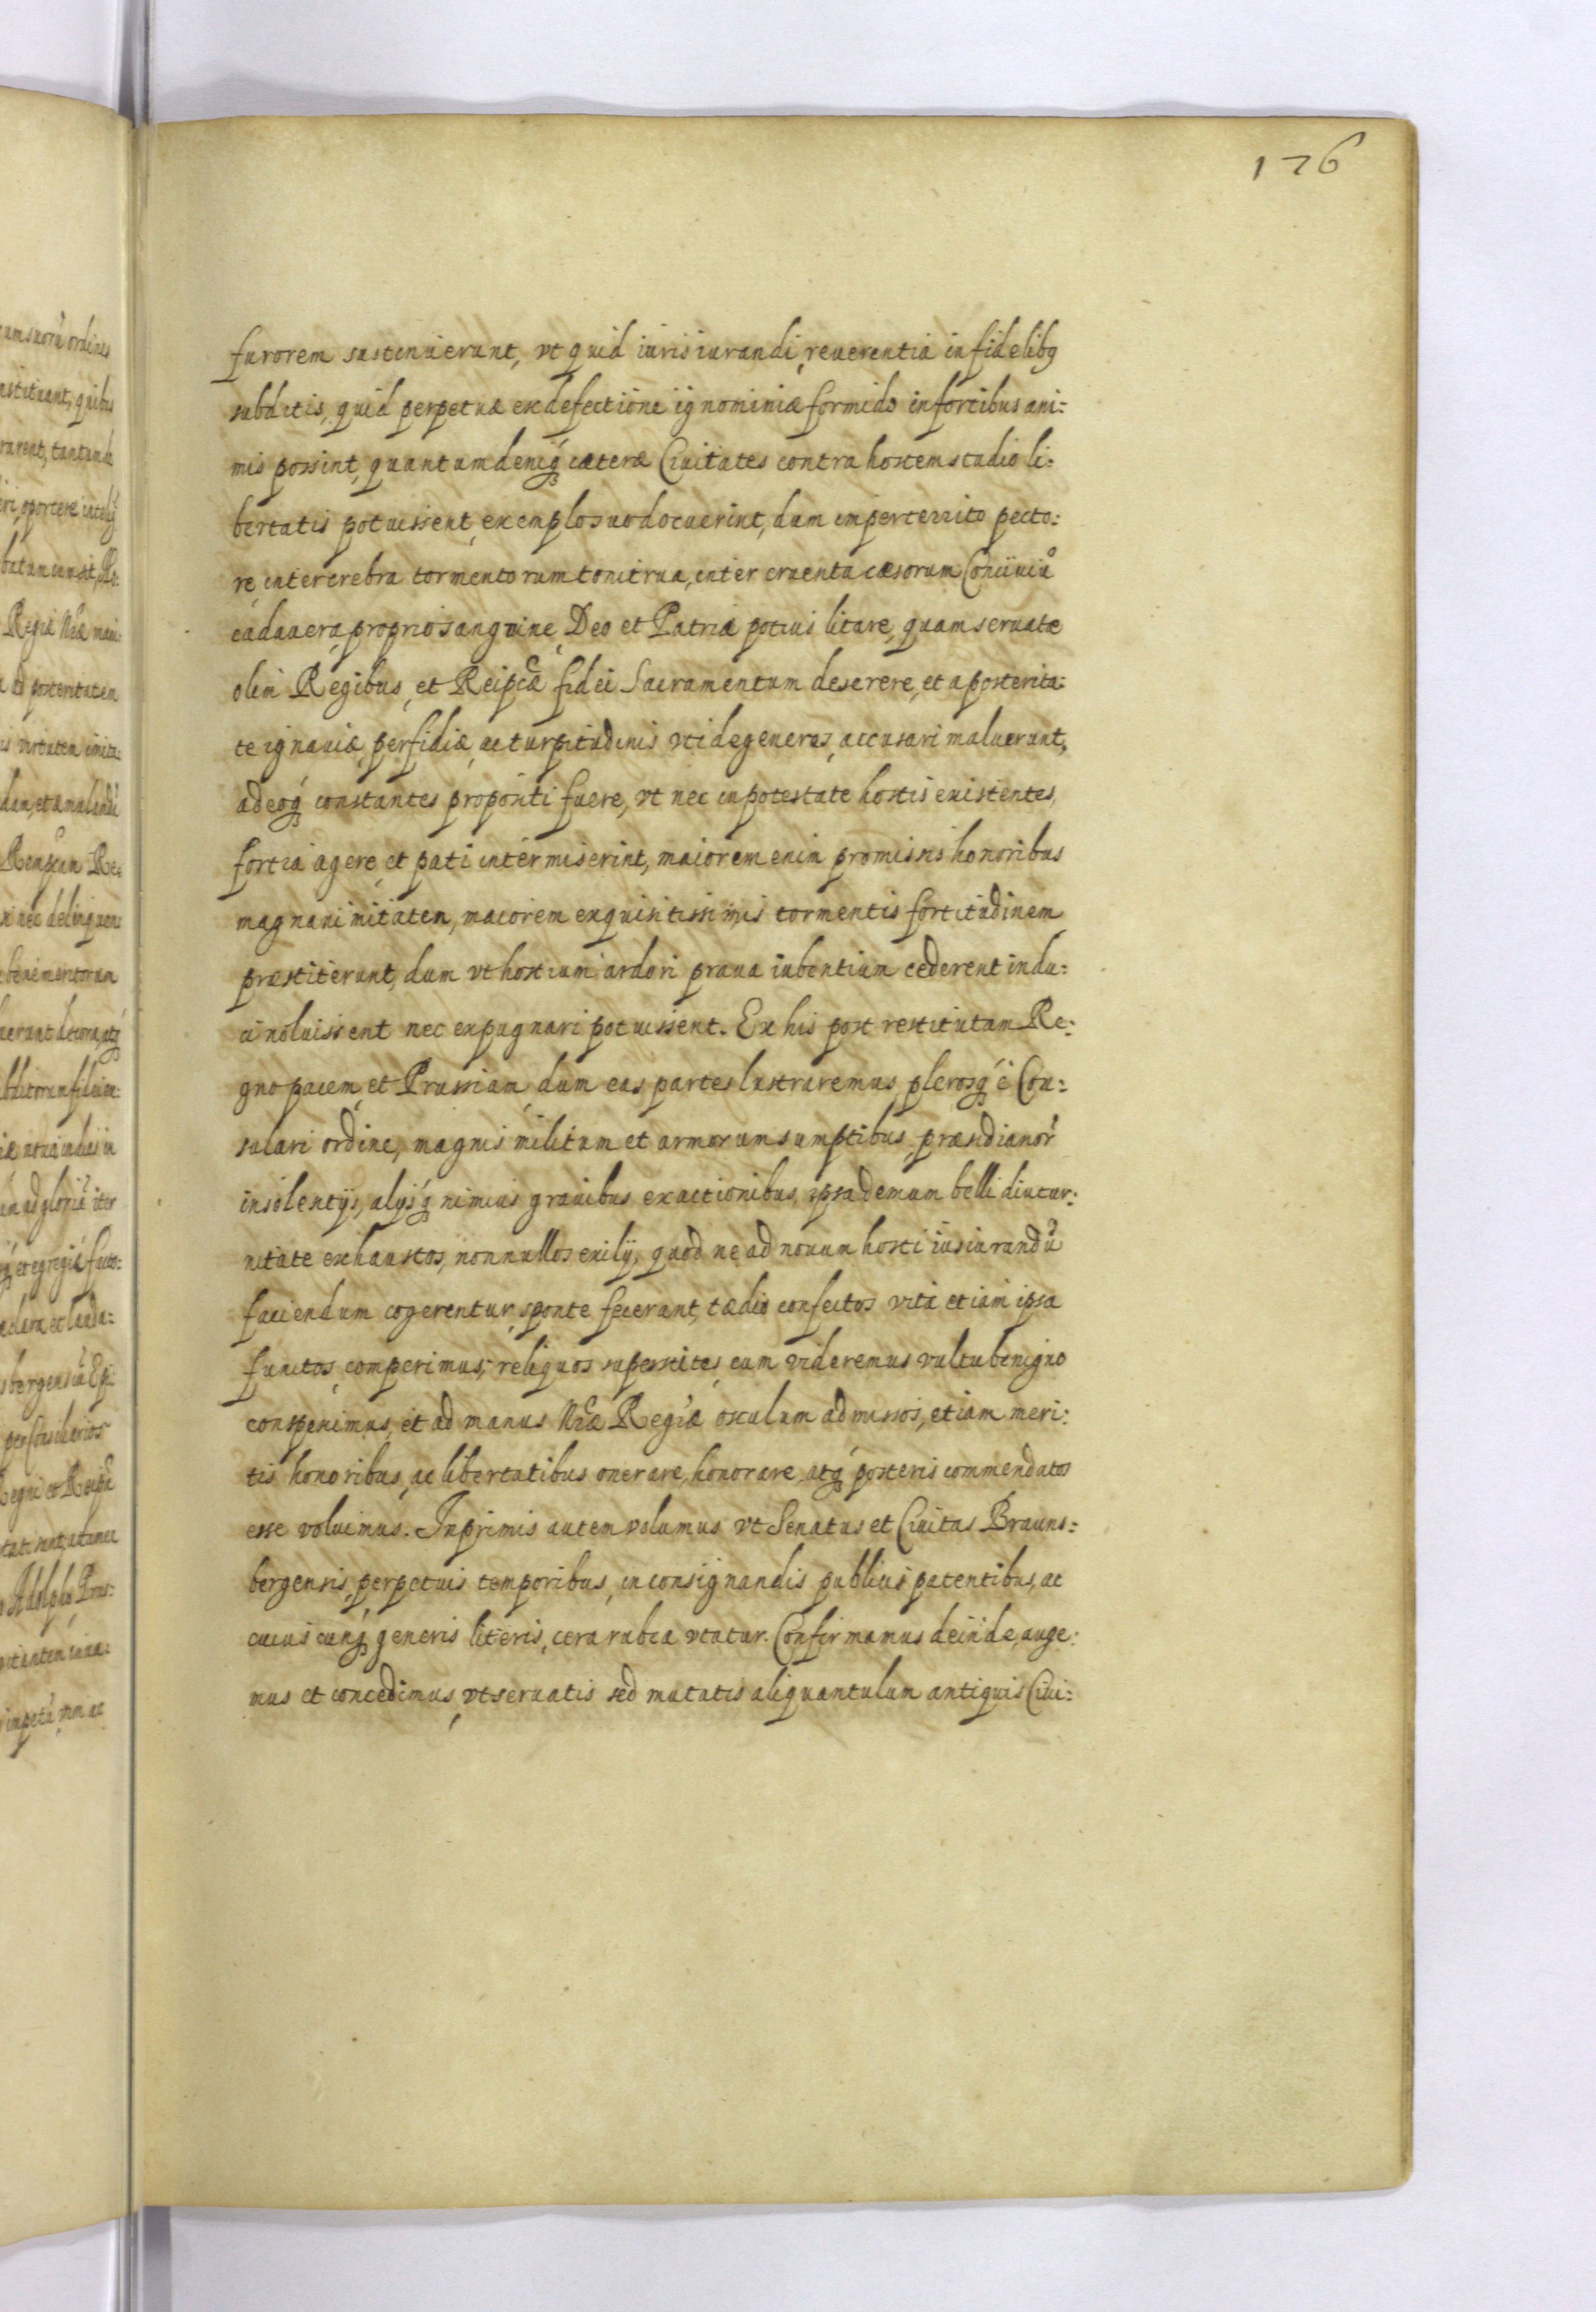 176
furorem sustinuerunt, vt quid iurisiurandi, reuerentia in fidelibq
subditis, quid perpetuæ ex defectione ignominiæ formido in fortibus ani:
mis possint, quantum deniq́ cæteræ Ciuitates contra hostem studio li:
bertatis potuissent, exemplo suo docuerint, dum imperterrito pecto:
re, inter crebra tormentorum tonitrua, inter cruenta cæsorum Conciuiũ
cadauera, proprio sanguine, Deo et Patriæ potius litare, quam seruatæ
olim Regibus, et Reipcæ fidei Sacramentum deserere, et a posterita:
te ignauiæ, perfidiæ, ac turpitudinis vti degeneres, accusari maluerunt,
adeoq́ constantes propositi fuere, vt nec in potestate hostis existentes,
fortia agere, et pati intermiserint, maiorem enim promissis honoribus
magnanimitatem, maiorem exquisitissimis tormentis fortitudinem
præstiterunt, dum vt hostium ardori praua iubentium cederent indu:
ci noluissent nec expugnari potuissent. Ex his post restitutam Re:
gno pacem, et Prussiam, dum eas partes lustraremus, plerosq́ è Con:
sulari ordine, magnis militum et armorum sumptibus, præsidianor̃
insolentijs, alijsq́ nimius grauibus exactionibus, ipsa demum belli diutur:
nitate exhaustos, nonnullos exilij, quod ne ad nouum hosti iusiurandũ
faciendum cogerentur, sponte fecerant, tædio confectos vita etiam ipsa
functos, comperimus; reliquos superstites, cum videremus vultu benigno
conspeximus, et ad manus Nr̃æ Regiæ osculum admissos, etiam meri:
tis honoribus, ac libertatibus onerare, honorare, atq́ posteris commendatos
esse voluimus. Inprimis autem volumus vt Senatus et Ciuitas Brauns:
bergensis, perpetuis temporibus, in consignandis publicis patentibus, ac
cuiuscunq́ generis literis, cera rubea vtatur. Confirmamus deinde, auge:
mus et concedimus, vt seruatis sed mutatis aliquantulum antiquis Ciui: